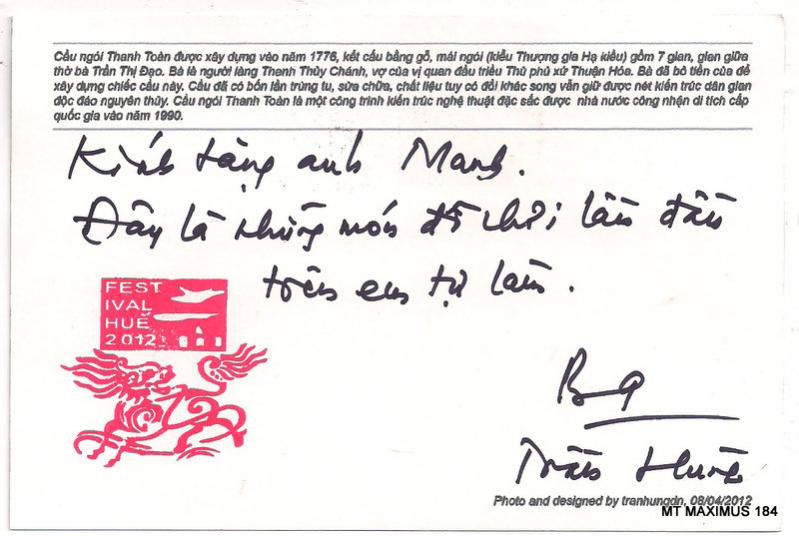 Cầu ngói Thanh Toàn được xây dựng vào năm 1776, kết cấu bằng gỗ, mái ngói (kiểu Thượng gia Hạ kiều) gồm 7 gian, gian giữa
thờ bà Trần Thị Đạo. Bà là người làng Thanh Thủy Chánh, vợ của vị quan đầu triều Thủ phủ xứ Thuận Hóa. Bà đã bỏ tiền của để
xây dựng chiếc cầu này. Cầu đã có bốn lần trùng tu, sửa chữa, chất liệu tuy có đổi khác song vẫn giữ được nét kiến trúc dân gian
độc đáo nguyên thủy. Cầu ngói Thanh Toàn là một công trình kiến trúc nghệ thuật đặc sắc được nhà nước công nhận di tích cấp
quốc gia vào năm 1990.
Kính tặng anh Manh.
Đây là những món đồ chơi lần đầu
tiên em tự làm.
FEST
IVAL
HUẾ
2012
Trần Hùng
Photo and designed by tranhungdn, 08/04/2012
MT MAXIMUS 184